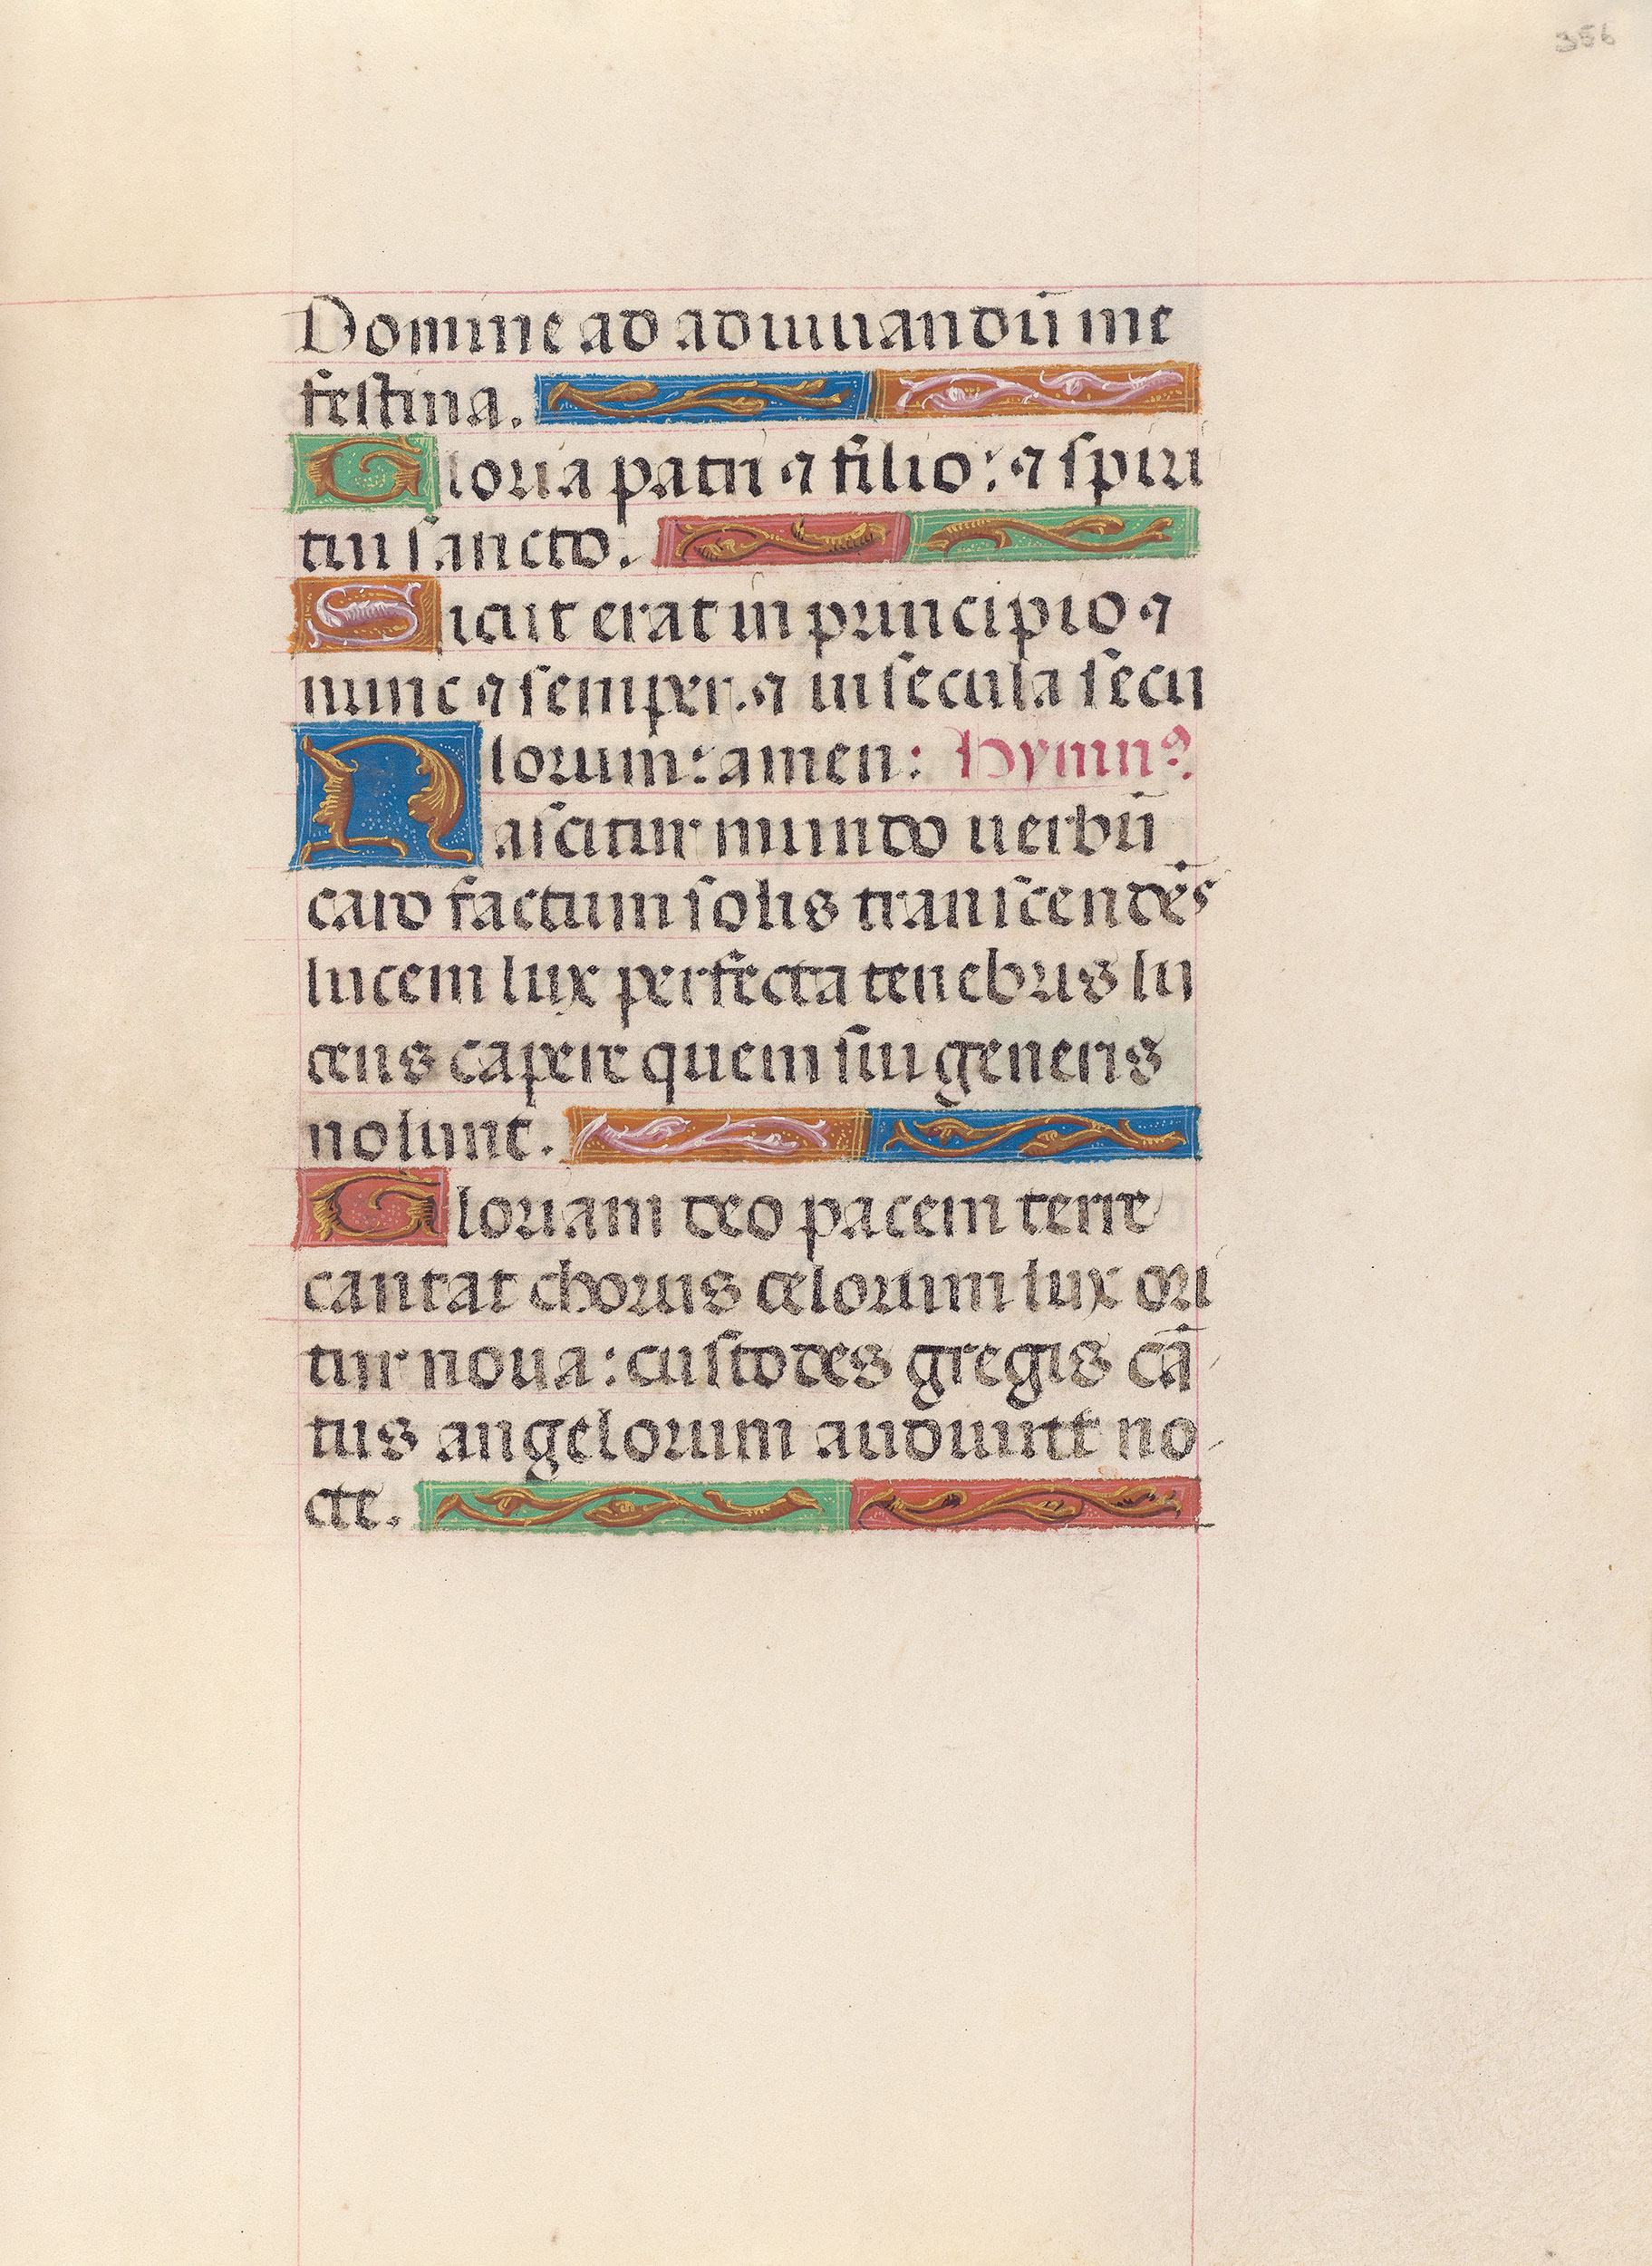 356
Domine ad adiuuandū me
festina.
Gloria patri ⁊ filio: ⁊ spiri
tui sancto.
Sicut erat in principio ⁊
nunc ⁊ semper. ⁊ in secula secu
lorum: amen: Hymnꝰ.
Nascitur mundo uerbū
caro factum solis transcendēs
lucem lux perfecta tenebris lu
cens capere quem sui generis
nolunt.
Gloriam deo pacem terre
cantat chorus celorum lux ori
tur noua: custodes gregis cā
tus angelorum audiunt no
cte.